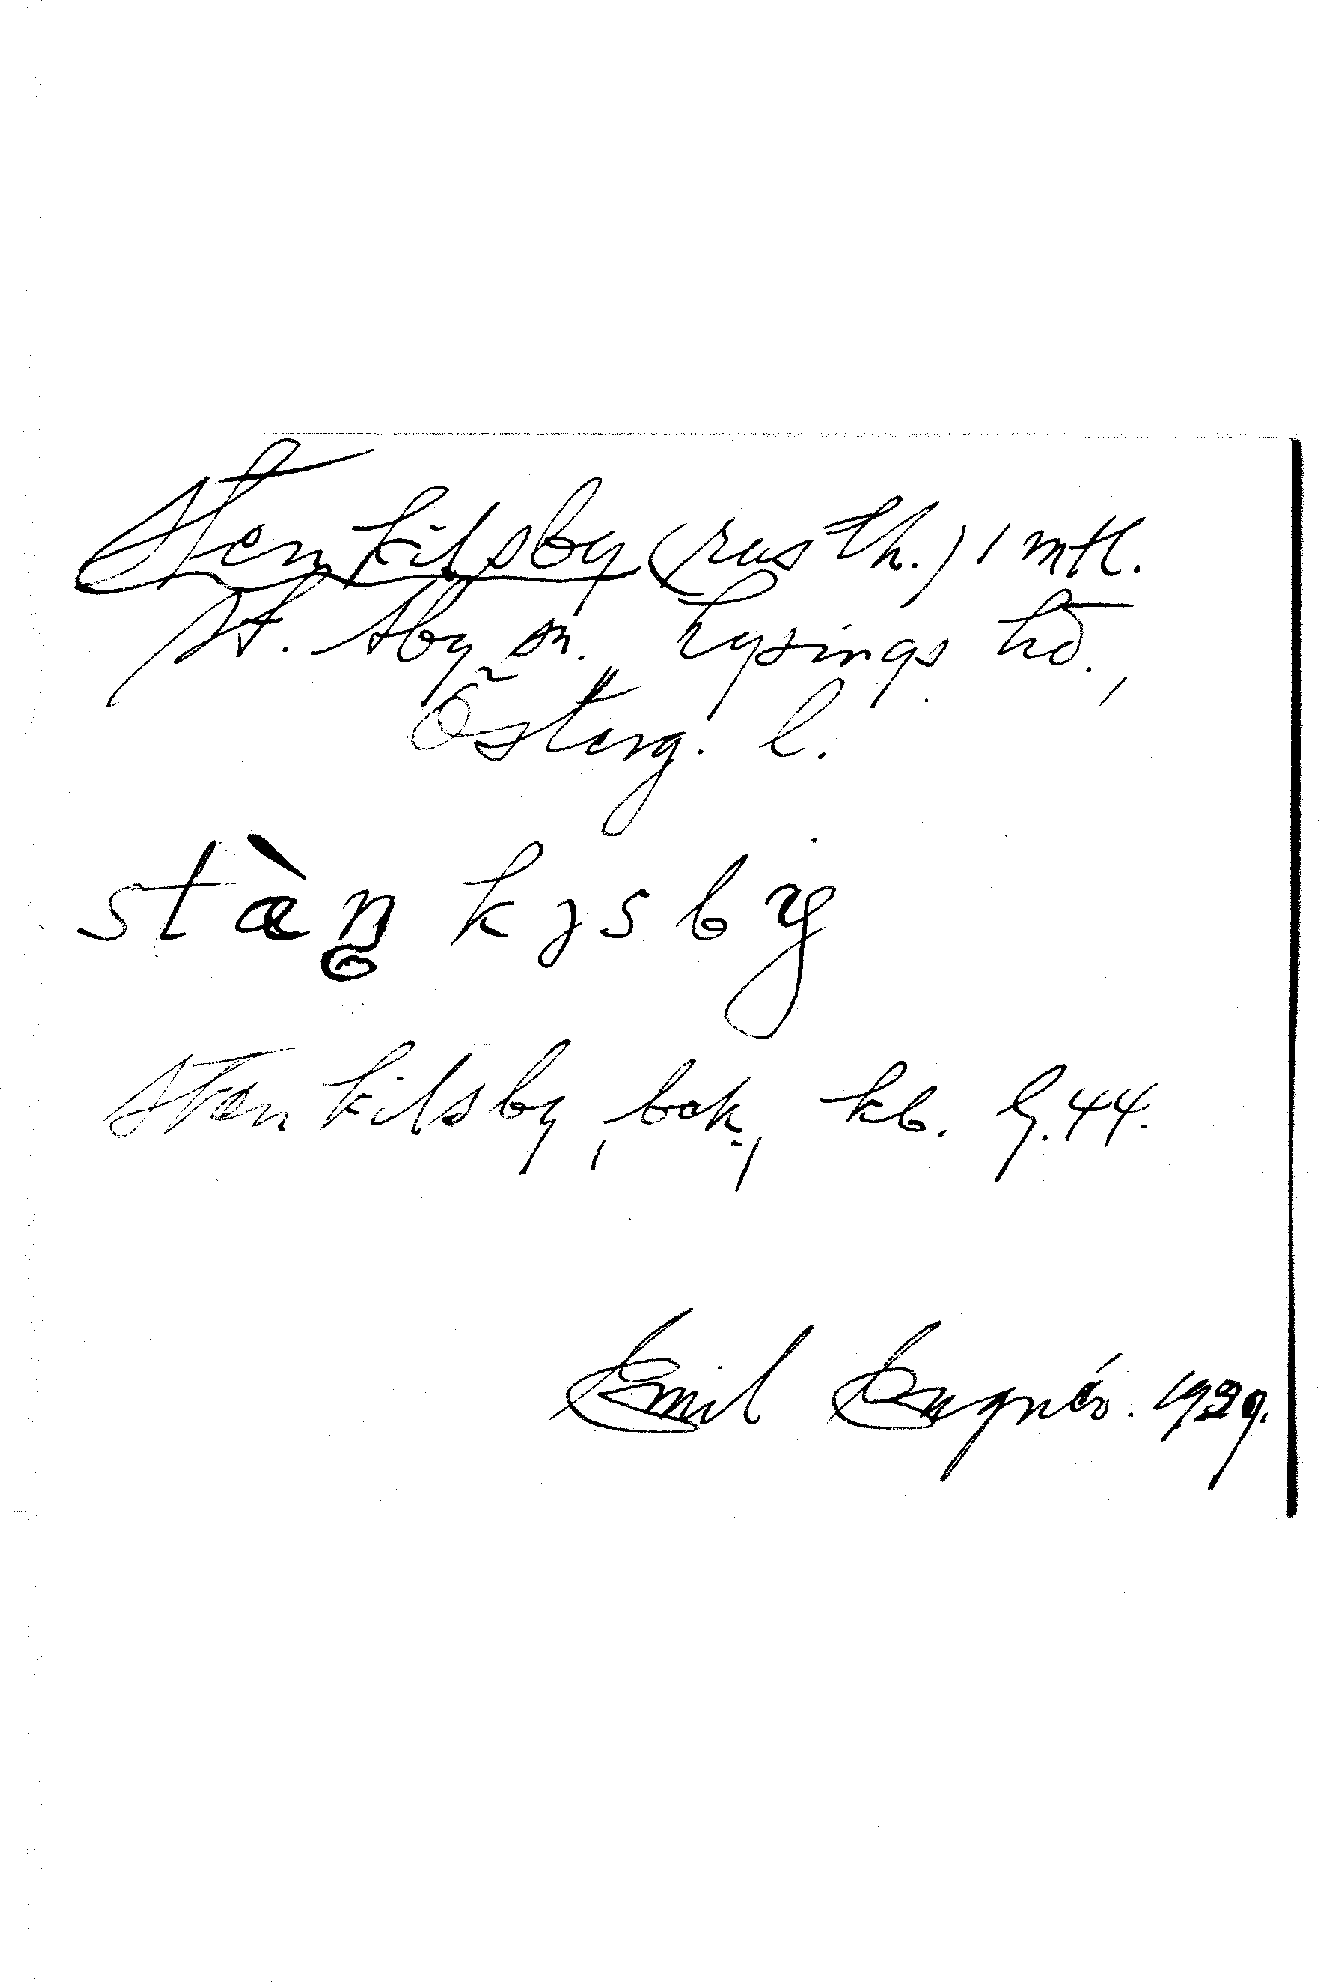 Stenkilsby (rusth.) 1 mtl.
St. Åby sn. Lysings hd.,
Österg. l.
stæ̀ŋkɪsbỳ
Stenkilsby, bek., kb. G.44.
Emil 1929.